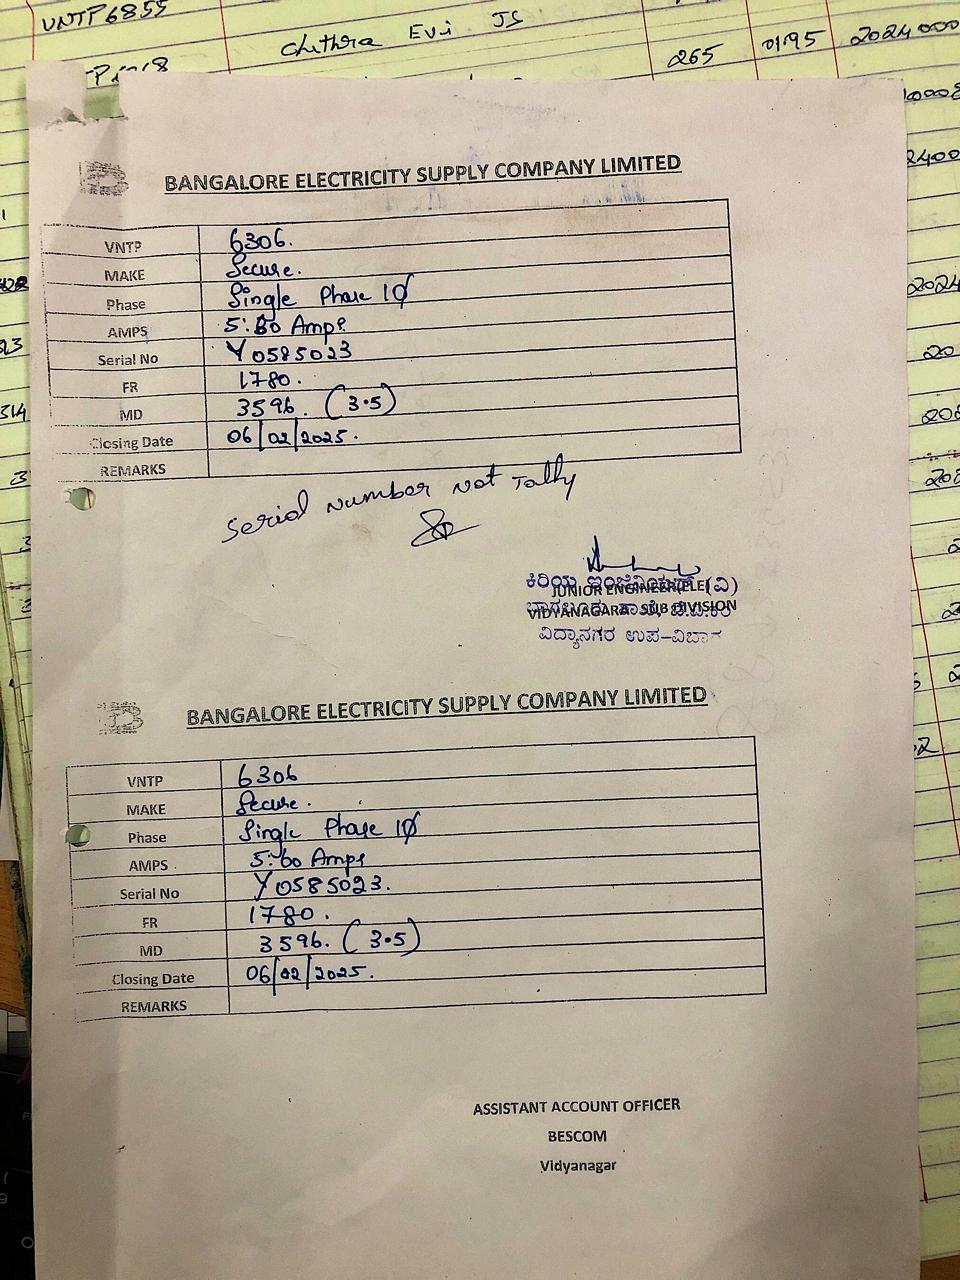 VNTP6855
Chithra Evi. JS
265 01.95 2024000
BANGALORE ELECTRICITY SUPPLY COMPANY LIMITED
VNTP 6306.
MAKE Secure.
Phase Single Phase 1Ø
AMPS 5:60 Amps
Serial No Y0585023
FR 1780.
MD 3596. (3.5)
Closing Date 06/02/2025.
REMARKS
Serial Number Not Tally
ಕಿರಿಯ ಇಂಜಿನಿಯರ್ (ವಿ)
JUNIOR ENGINEER(ELE)
VIDYANAGARA SUB DIVISION
ವಿದ್ಯಾನಗರ ಉಪ-ವಿಭಾಗ
BANGALORE ELECTRICITY SUPPLY COMPANY LIMITED
VNTP 6306
MAKE Secure.
Phase Single Phase 1Ø
AMPS 5:60 Amps
Serial No Y0585023.
FR 1780.
MD 3596. (3.5)
Closing Date 06/02/2025.
REMARKS
ASSISTANT ACCOUNT OFFICER
BESCOM
Vidyanagar